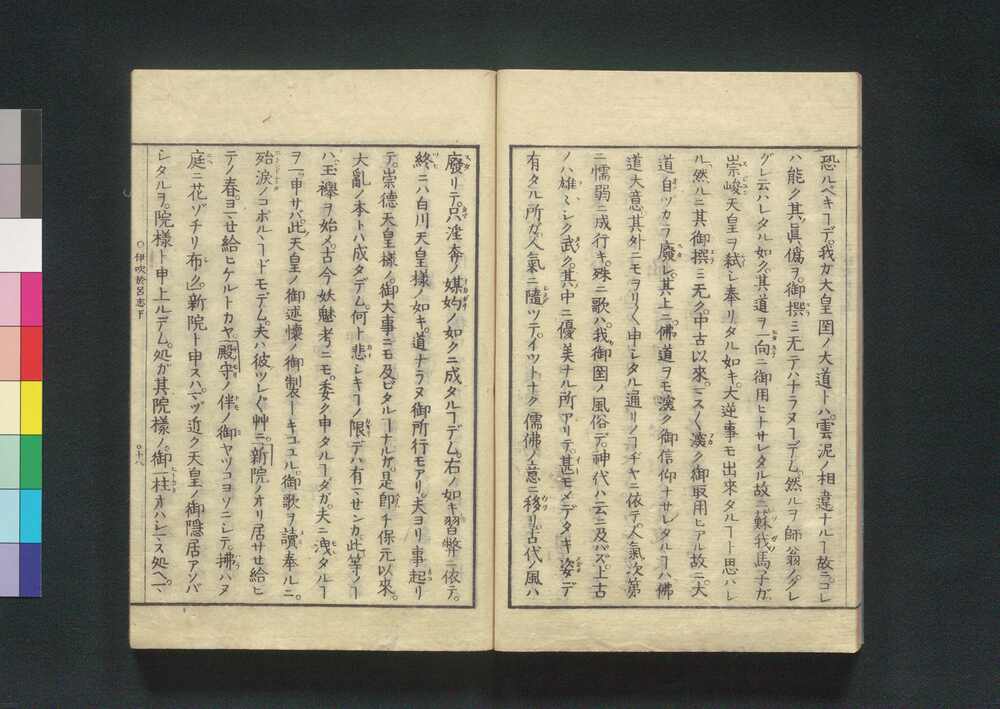 恐ルベキヿデ。我ガ大皇国ノ大道トハ。雲泥ノ相違ナルヿ故ニ。コレ
ハ能ク其眞僞ヲ。御撰ミ無テハナラヌヿデム。然ルヲ師翁ノ。ダレ
グレ云ハレタル如ク。其道ヲ一向ニ御用ヒナサレタル故ニ。蘇我馬子ガ
崇峻天皇ヲ弑シ奉リタル如キ。大逆事モ出來タルヿト思ハレ
ル。然ルニ其御撰ミ無ク。中古以來。マスく濵ク御取用ヒアル故ニ。大
道自ヅカラ廢レ。其上ニ佛道ヲモ濵ク御信仰ナサレタルヿハ佛
道大意其外ニモヲリく申シタル通リノヿヂヤニ依テ。人氣次第
ニ懦弱ニ成行キ。殊ニ歌ハ。我御国ノ風俗デ。神代ハ云ニ及バズ。上古
ノハ雄々シク武ク。其中ニ優美ナル所アリテ。甚モメデタキ姿デ
有タル所ガ。人氣ニ隨ツテ。イツトナク儒佛ノ意ニ移リ。古代ノ風ハ
廢リテ。只淫奔ノ媒妁ノ如クニ成タルヿデム。右ノ如キ習弊ニ依テ。
終ニハ白川天皇様ノ如キ。道ナラヌ御所行モアリ。夫ヨリ事起リ
テ。崇德天皇様ノ御大事ニモ及ビタルヿナルガ。是卽チ保元以來。
大亂ノ本トハ成タデム。何ト悲シキヿノ限デハ有マセンカ。此等ノヿ
ハ。玉襷ヲ始メ。古今妖魅考ニモ。委ク申タルヿダガ。夫ニ洩タルヿ
ヲ一ツ申サバ。此天皇ノ御述懷ノ御製ヿキコユル。御歌ヲ讀奉ルニ。
殆涙ノコボルヽホドモデム。夫ハ彼ツレぐ艸ニ。新院ノオリ居サセ給ヒ
テノ春。ヨマセ給ヒケルトカヤ。殿守ノ伴ノ御ヤツコヨソニシテ。拂ハヌ
庭ニ花ゾチリ布ク。新院ト申スハ。マヅ近ク天皇ノ御隱居アソバ
シタルヲ。院様ト申上ルデム。処ガ其院様ノ。御一柱オハシマス処ヘ。マ
〇伊吹於呂志下
〇十八